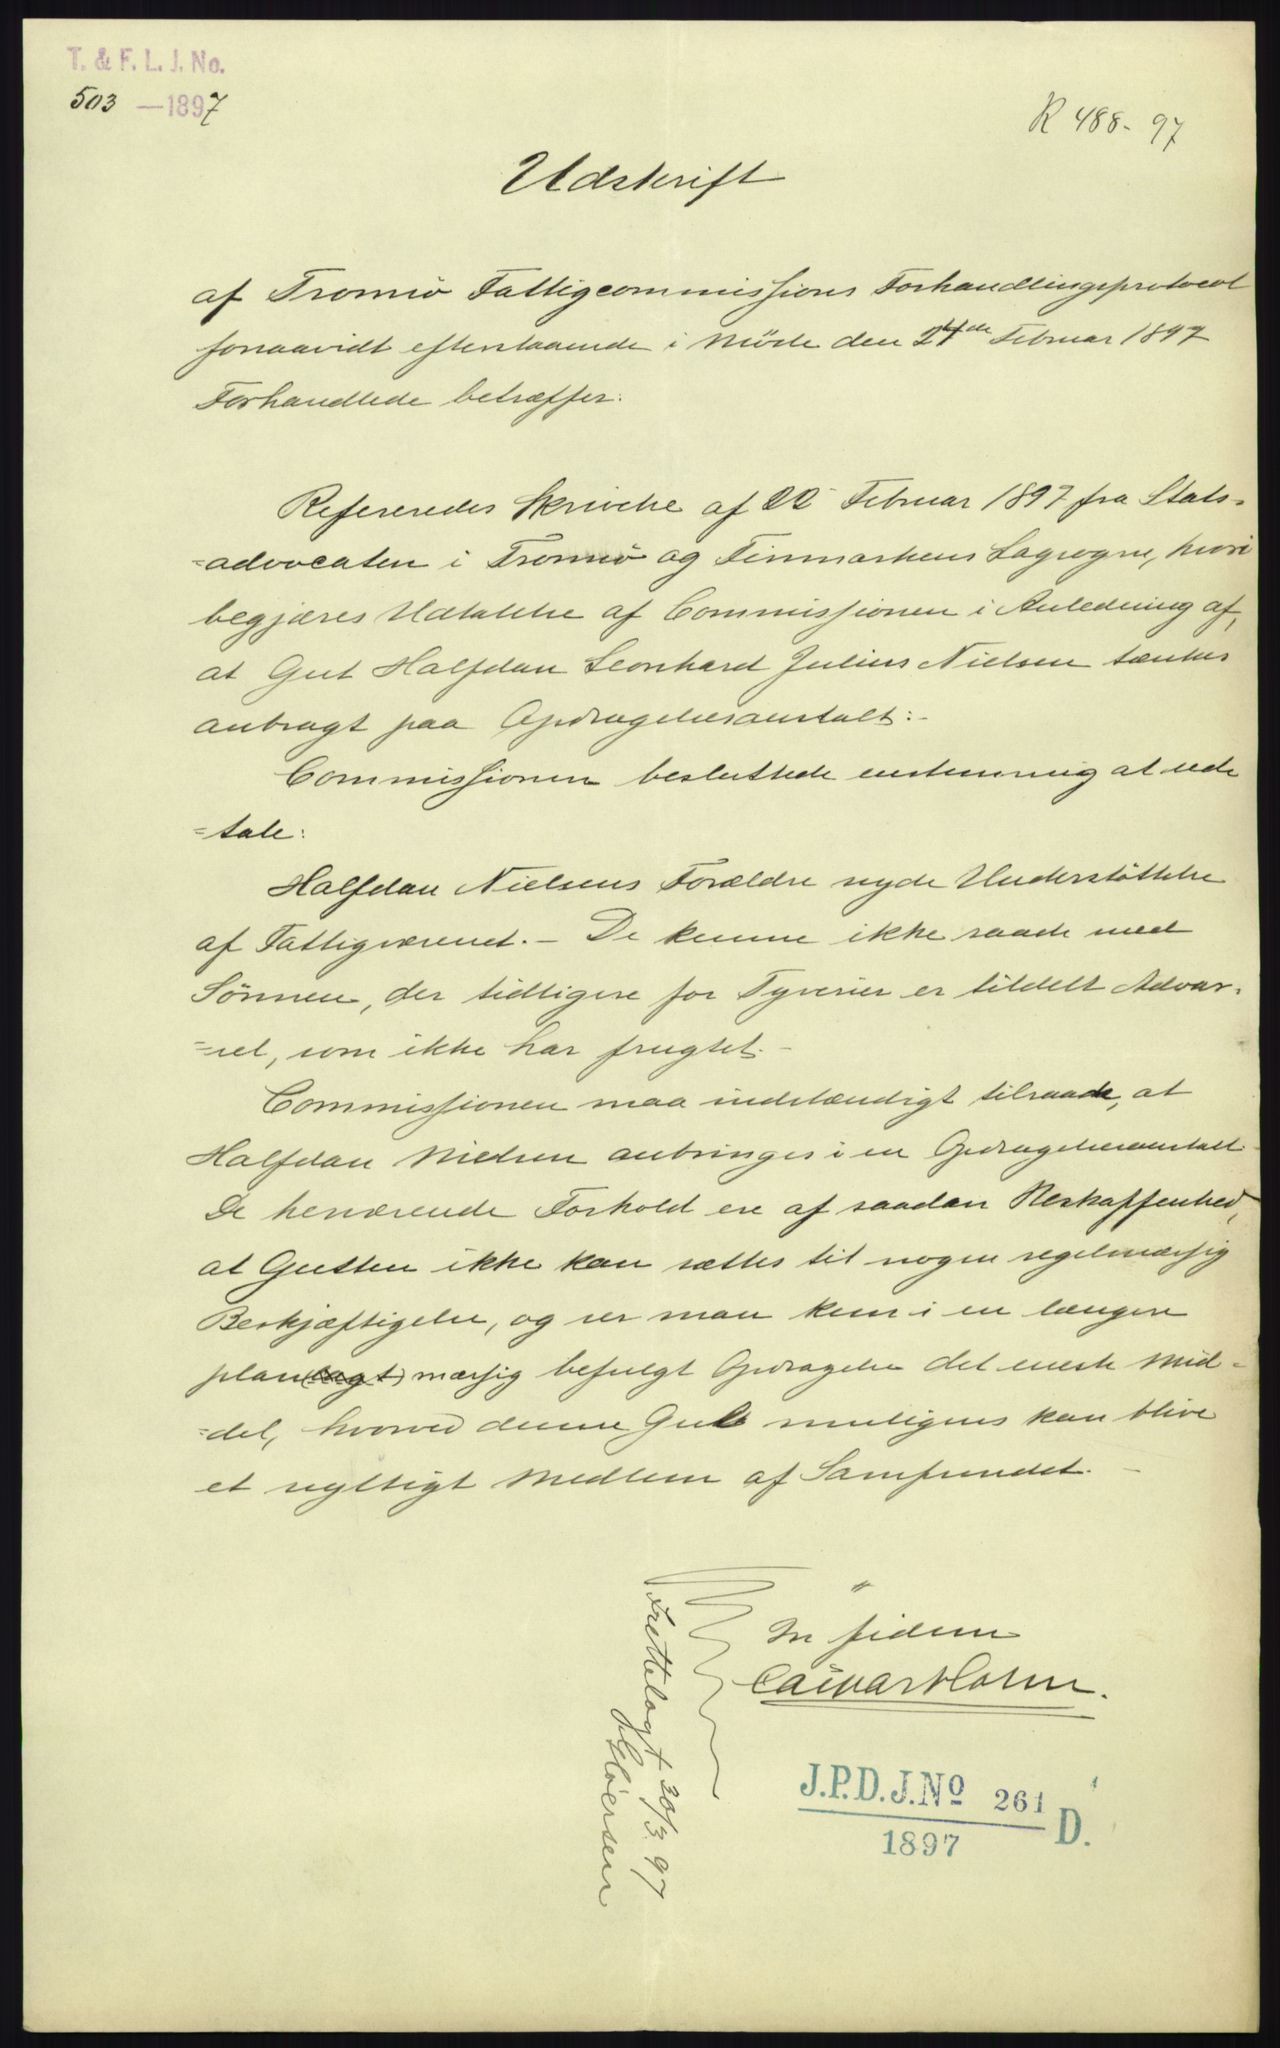 T. & F. L. J. No.
503 — 1897
R 488 - 97
Udskrift
af Tromsö Fattigcommissions Forhandlingsprotocol
forsaavidt efterstaaende i Möde den 24de Februar 1897
Forhandlede betræffer:
Refereredes Skrivelse af 22 Februar 1897 fra Stats-
=advocaten i Tromsö og Finmarkens Lagsogne, hvori
begjæres Udtalelse af Commissionen i Anledning af,
at Gut Halfdan Leonhard Julius Nielsen tænkes
anbragt paa Opdragelsesanstalt:-
Commissionen besluttede enstemmig at ud=
=tale:
Halfdan Nielsens Forældre nyde Understöttelse
af Fattigvæsenet. - De kunne ikke raade med
Sönnen, der tidligere for Tyverier er tildelt Advar-
=sel, som ikke har frugtet. -
Commissionen maa indstændigt tilraade, at
Halfdan Nielsen anbringes i en Opdragelsesanstalt.
De herværende Forhold ere af saadan Beskaffenhed,
at Gutten ikke kan sættes til nogen regelmæssig
Beskjæftigelse, og ser man kun i en længere
plan(lagt)mæssig befulgt Opdragelse det eneste Mid-
=del, hvorved denne Gut muligens kan blive
et nyttigt Medlem af Samfundet. -
In fidem
Caspar Holm.
Fretteløgt 20/3 97
J.P.D.J.No 261 D.
1897